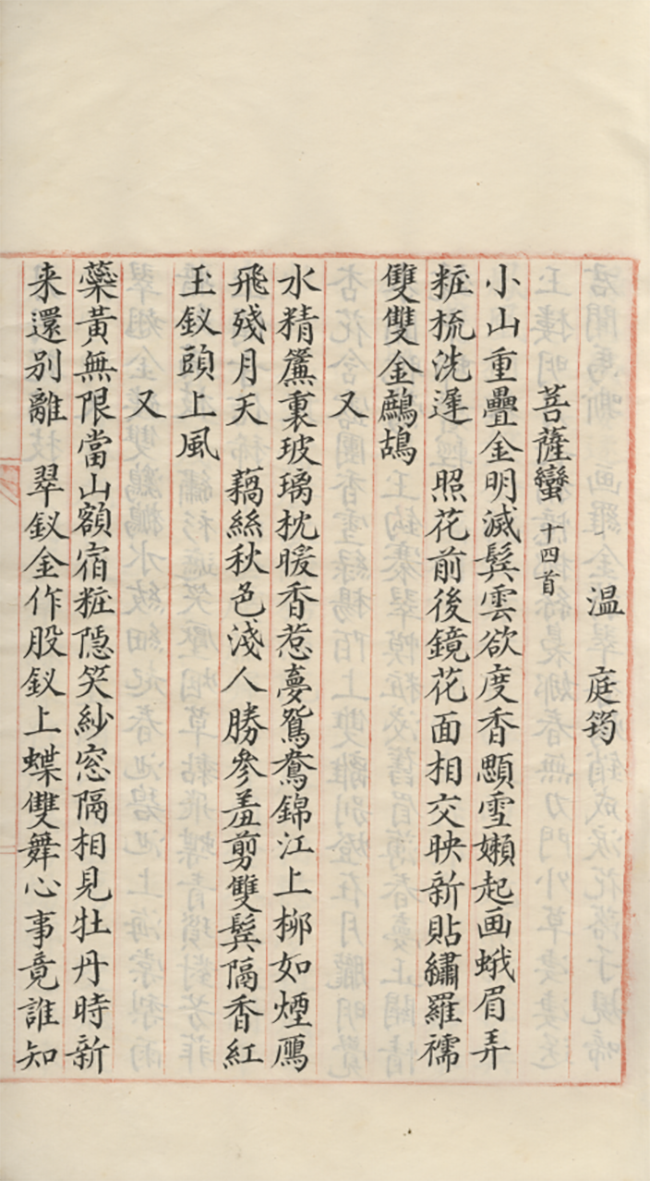 溫 庭筠
菩薩蠻 十四首
小山重疊金明滅鬂雲欲度香顋雪嬾起画蛾眉弄
粧梳洗遲 照花前後鏡花面相交映新貼繡羅襦
雙雙金鷓鴣
又
水精簾裏玻璃枕暖香惹夢鴛鴦錦江上柳如煙鴈
飛殘月天 藕絲秋色淺人勝參差剪雙鬂隔香紅
玉釵頭上風
又
蘂黃無限當山額宿粧隱笑紗窓隔相見牡丹時新
来還別離 翠釵金作股釵上蝶雙舞心事竟誰知